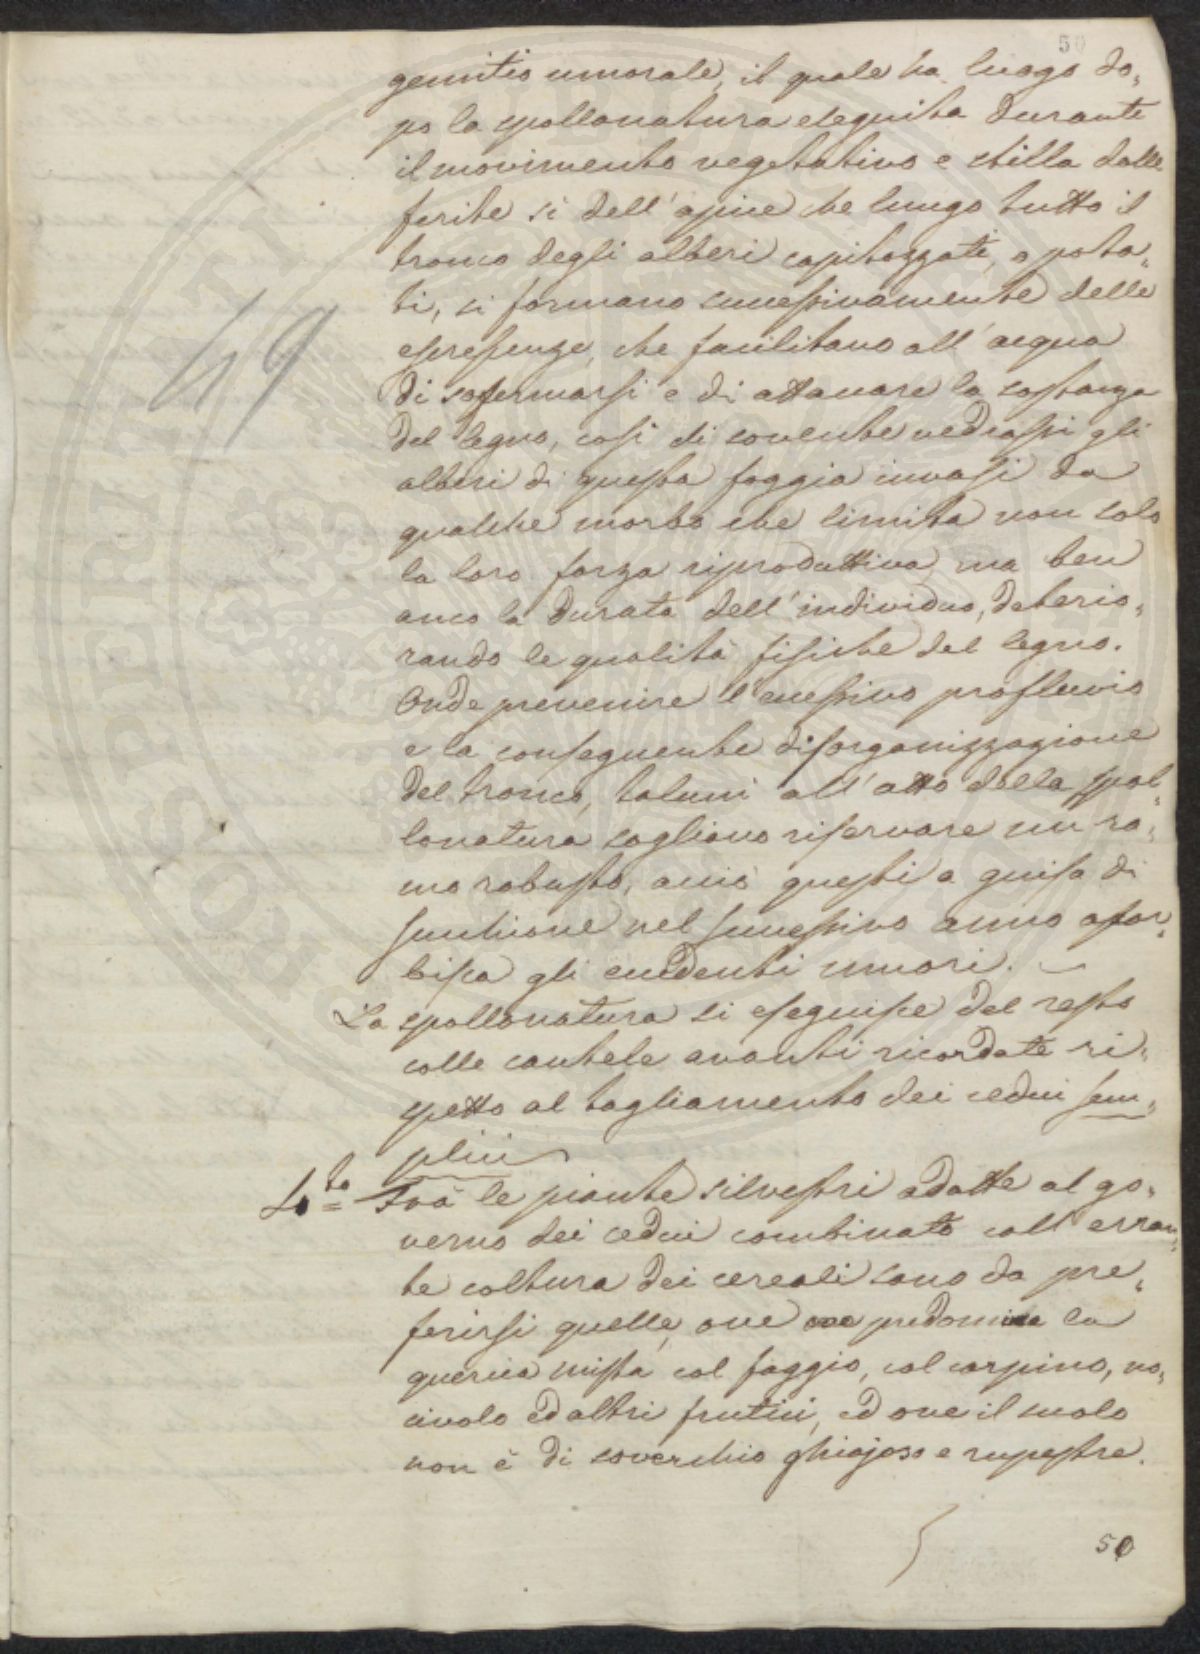 50
gemitio umorale, il quale ha luogo do„
po la spollonatura eseguita durante
il movimento vegetativo e stilla dalle
ferite sì dell'apice che lungo tutto il
tronco degli alberi capitozzati, o pota„
ti, si formano successivamente delle
escrescenze, che facilitano all'acqua
di soffermarsi e di attaccare la sostanza
del legno, così di sovente vedrassi gli
alberi di questa foggia invasi da
qualche morbo che limita non solo
la loro forza riproduttiva, ma ben
anco la durata dell'individuo, deterio„
rando le qualità fisiche del legno.
Onde prevenire l'eccessivo profluvio
e la conseguente disorganizzazione
del tronco, taluni all'atto della spol„
lonatura sogliono riservare un ra„
mo robusto, acciò questi a guisa di
succhione nel successivo anno assor„
bisca gli eccedenti umori.
La spollonatura si eseguisce del resto
colle cautele avanti ricordate ri„
spetto al tagliamento dei cedui sem„
plici
4.to Frà le piante silvestri adatte al go„
verno dei cedui combinato coll'erran„
te coltura dei cereali sono da pre„
ferirsi quelle, ove predomina la
quercia mista col faggio, col carpino, no„
civolo ed altri frutici, ed ove il suolo
non è di soverchio ghiajoso e rupestre.
49
50
PROSPERITATI PUBLICAE